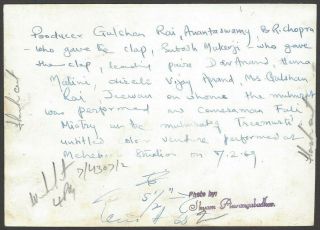 Producer Gulshan Rai, Anantaswamy B.R. Chopra
- who gave the clap, Subodh Mukerji - who gave
the clap, leading pair Dev Anand, Hema
Malini, director Vijay Anand, Mrs Gulshan
Rai Jeewan on whome the muhurat
was performed and Cameraman Fali
Mistry on the muhurat of Trimurti's
untitled color venture performed at
Mehboob Studion on 7/2.69.
7/4307/2
5 1/2"
Photo by:
Shyam Aurangabadkar.